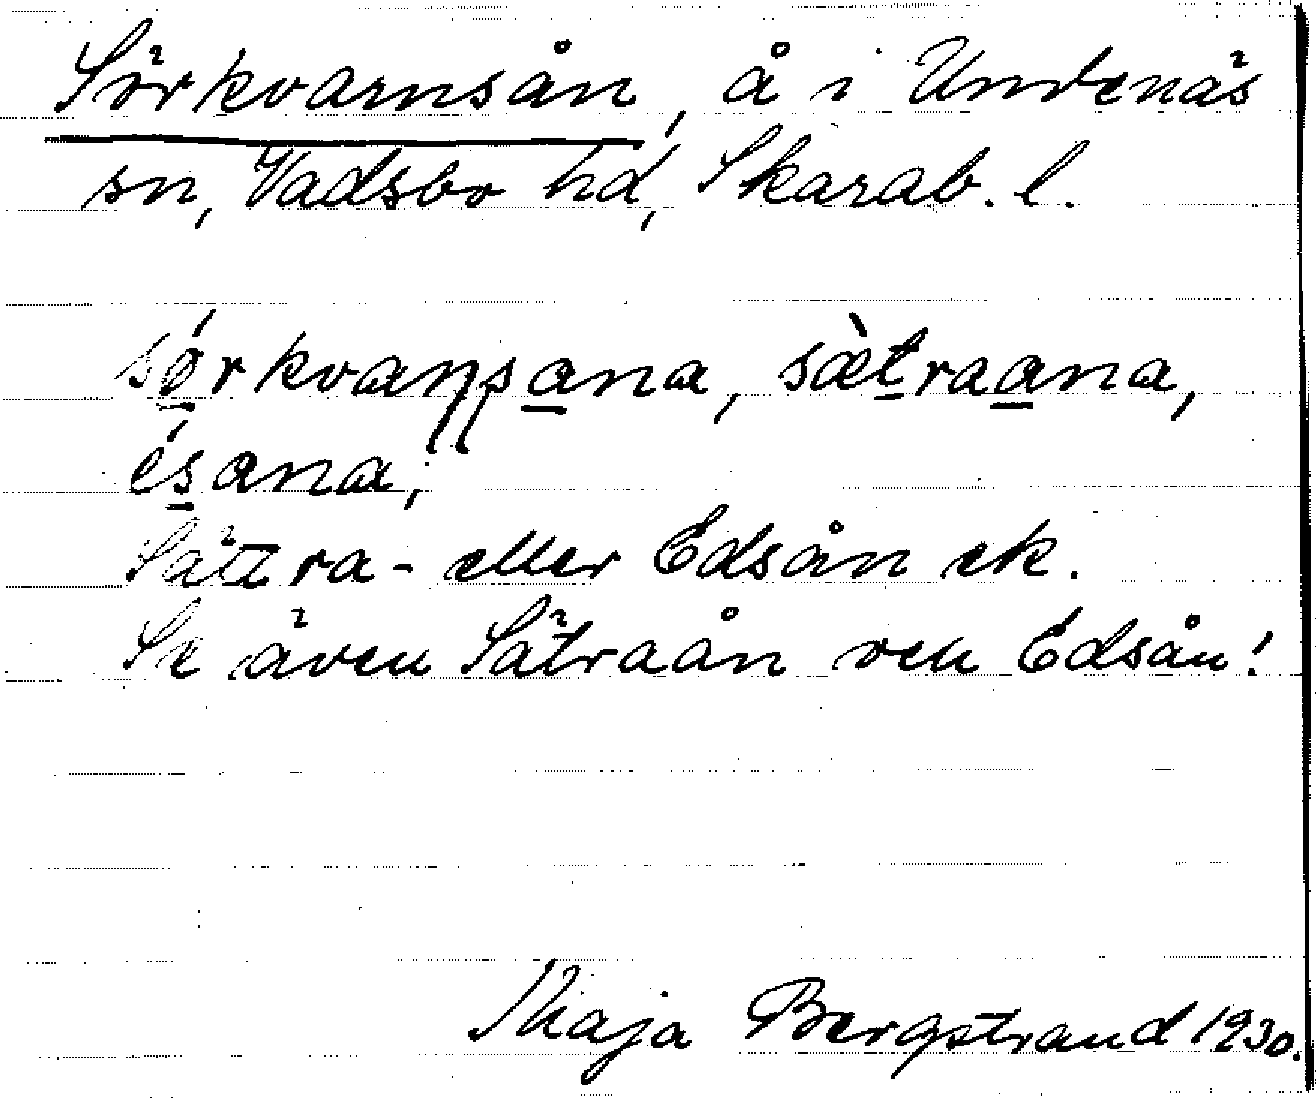 Sörkvarnsån, å i Undenäs
sn, Vadsbo hd, Skarab. l.
sǿrkvaɳʂana, sæ̀traana,
ésana,
Sätra- eller Edsån ek.
Se även Sätraån och Edsån!
Maja Bergstrand 1930.